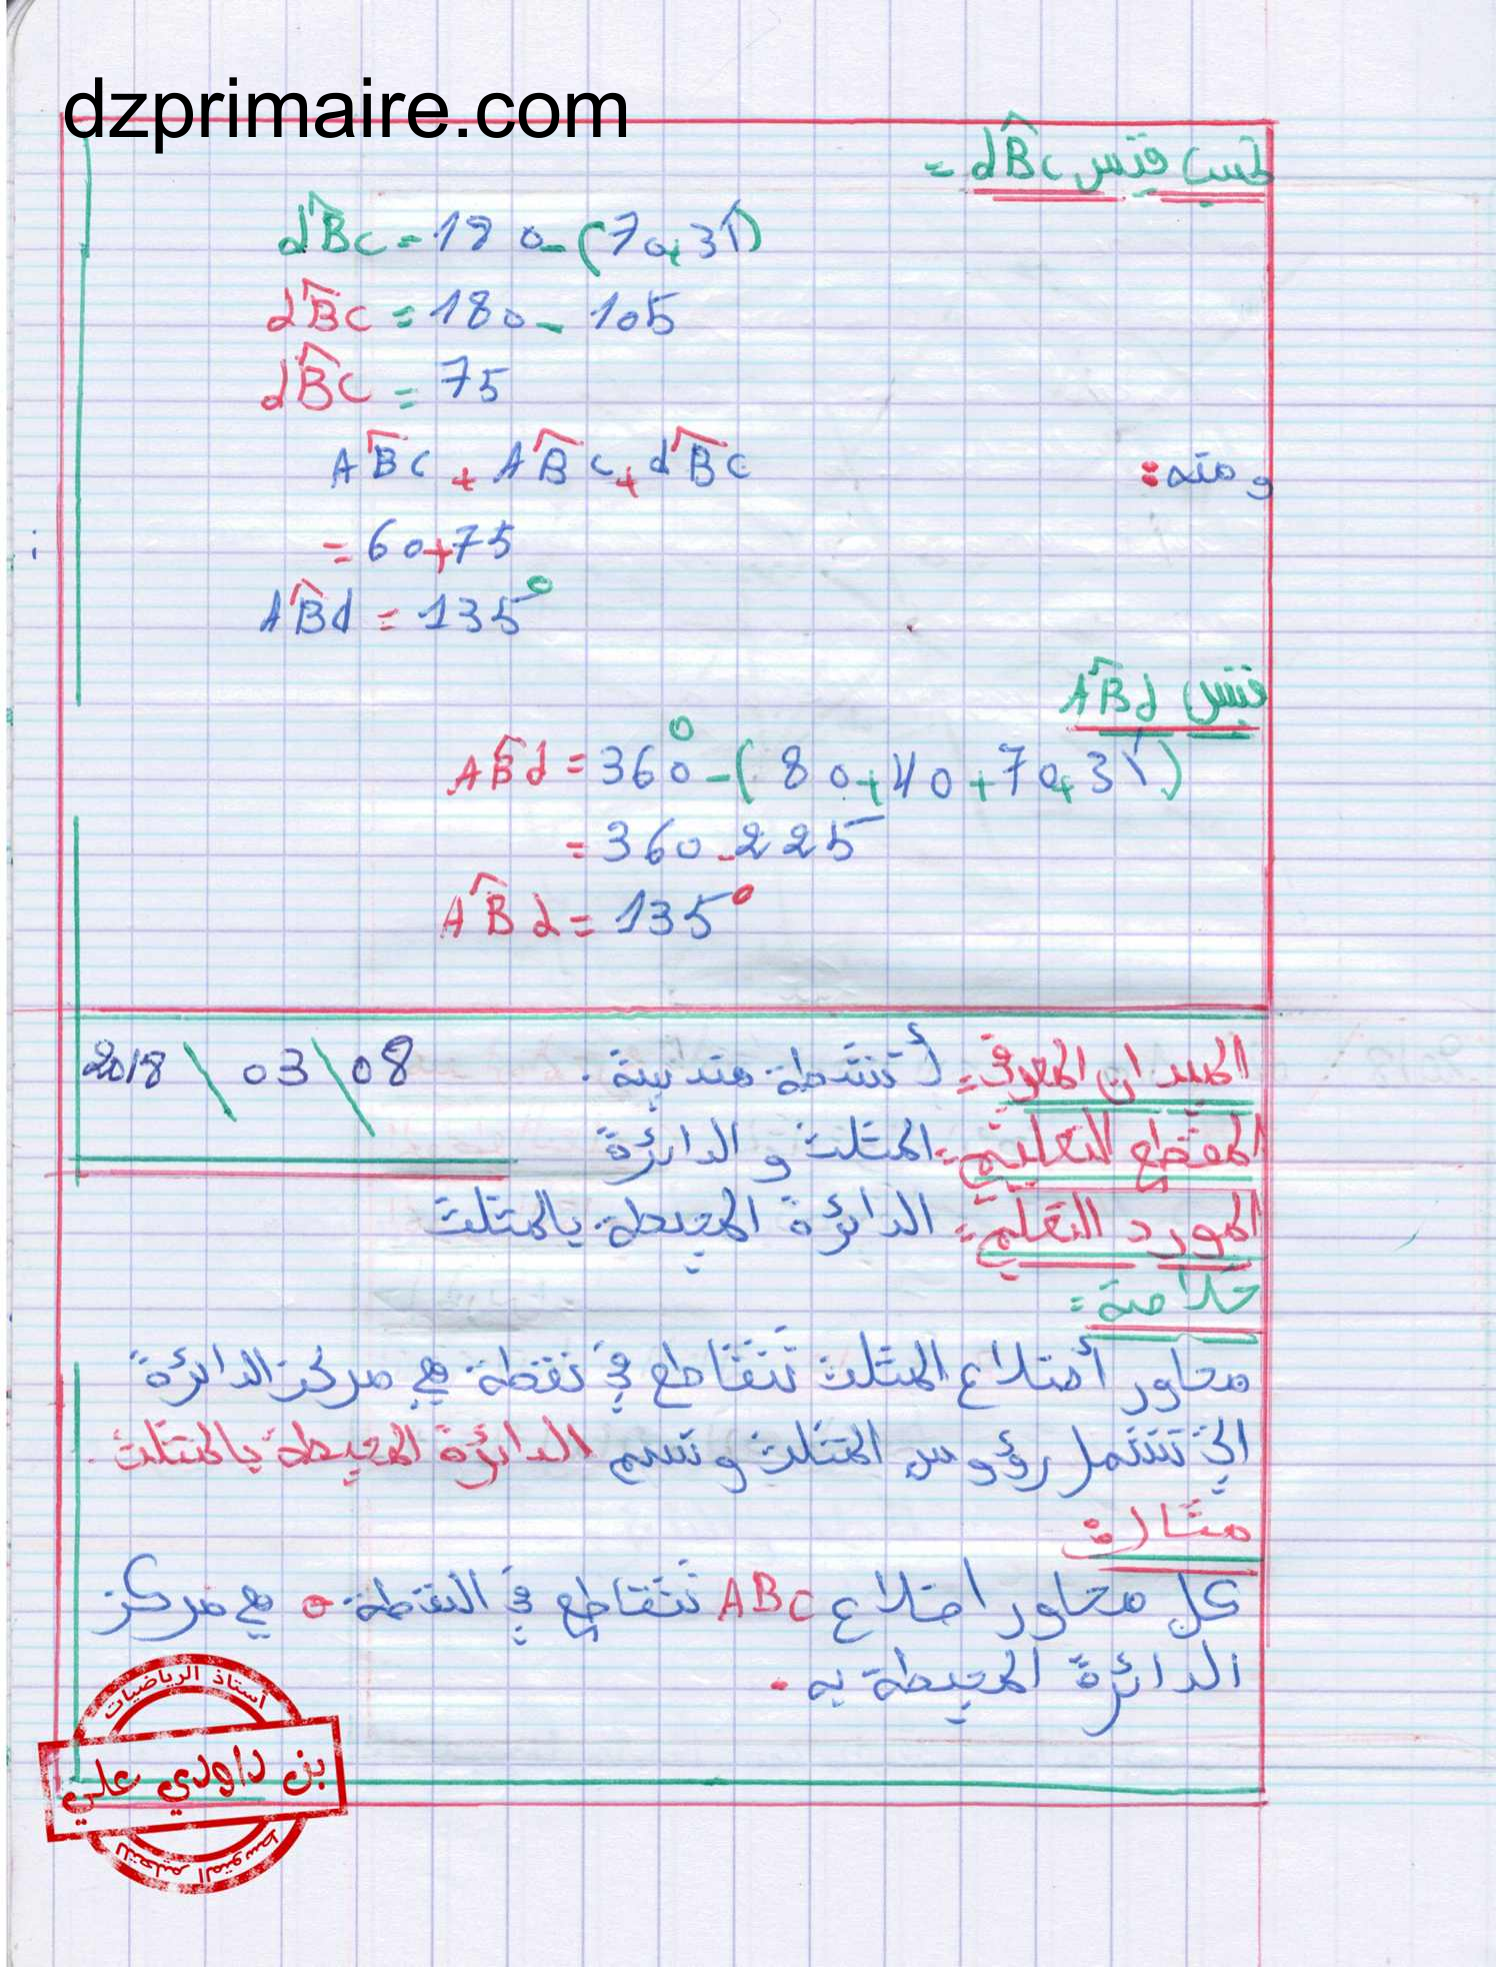 dzprimaire.com
نحسب قيس dB̂c =
dB̂c = 180 - (70+35)
dB̂c = 180 - 105
dB̂c = 75
و منه : AB̂c + AB̂c + dB̂c
= 60+75
AB̂d = 135°
قيس AB̂d
AB̂d = 360° - (80+40+70+35)
= 360 - 225
AB̂d = 135°
الميدان المعرفي = أنشطة هندسية . 08 \ 03 \ 2018
المقطع التعليمي = المثلث و الدائرة
المورد التعلمي = الدائرة المحيطة بالمثلث
خلاصة =
محاور أضلاع المثلث تتقاطع في نقطة هي مركز الدائرة
التي تشمل رؤوس المثلث و تسمى الدائرة المحيطة بالمثلث .
مثال :
كل محاور اضلاع ABC تتقاطع في النقطة o هي مركز
الدائرة المحيطة به .
أستاذ الرياضيات
بن داودي علي
للتعليم المتوسط